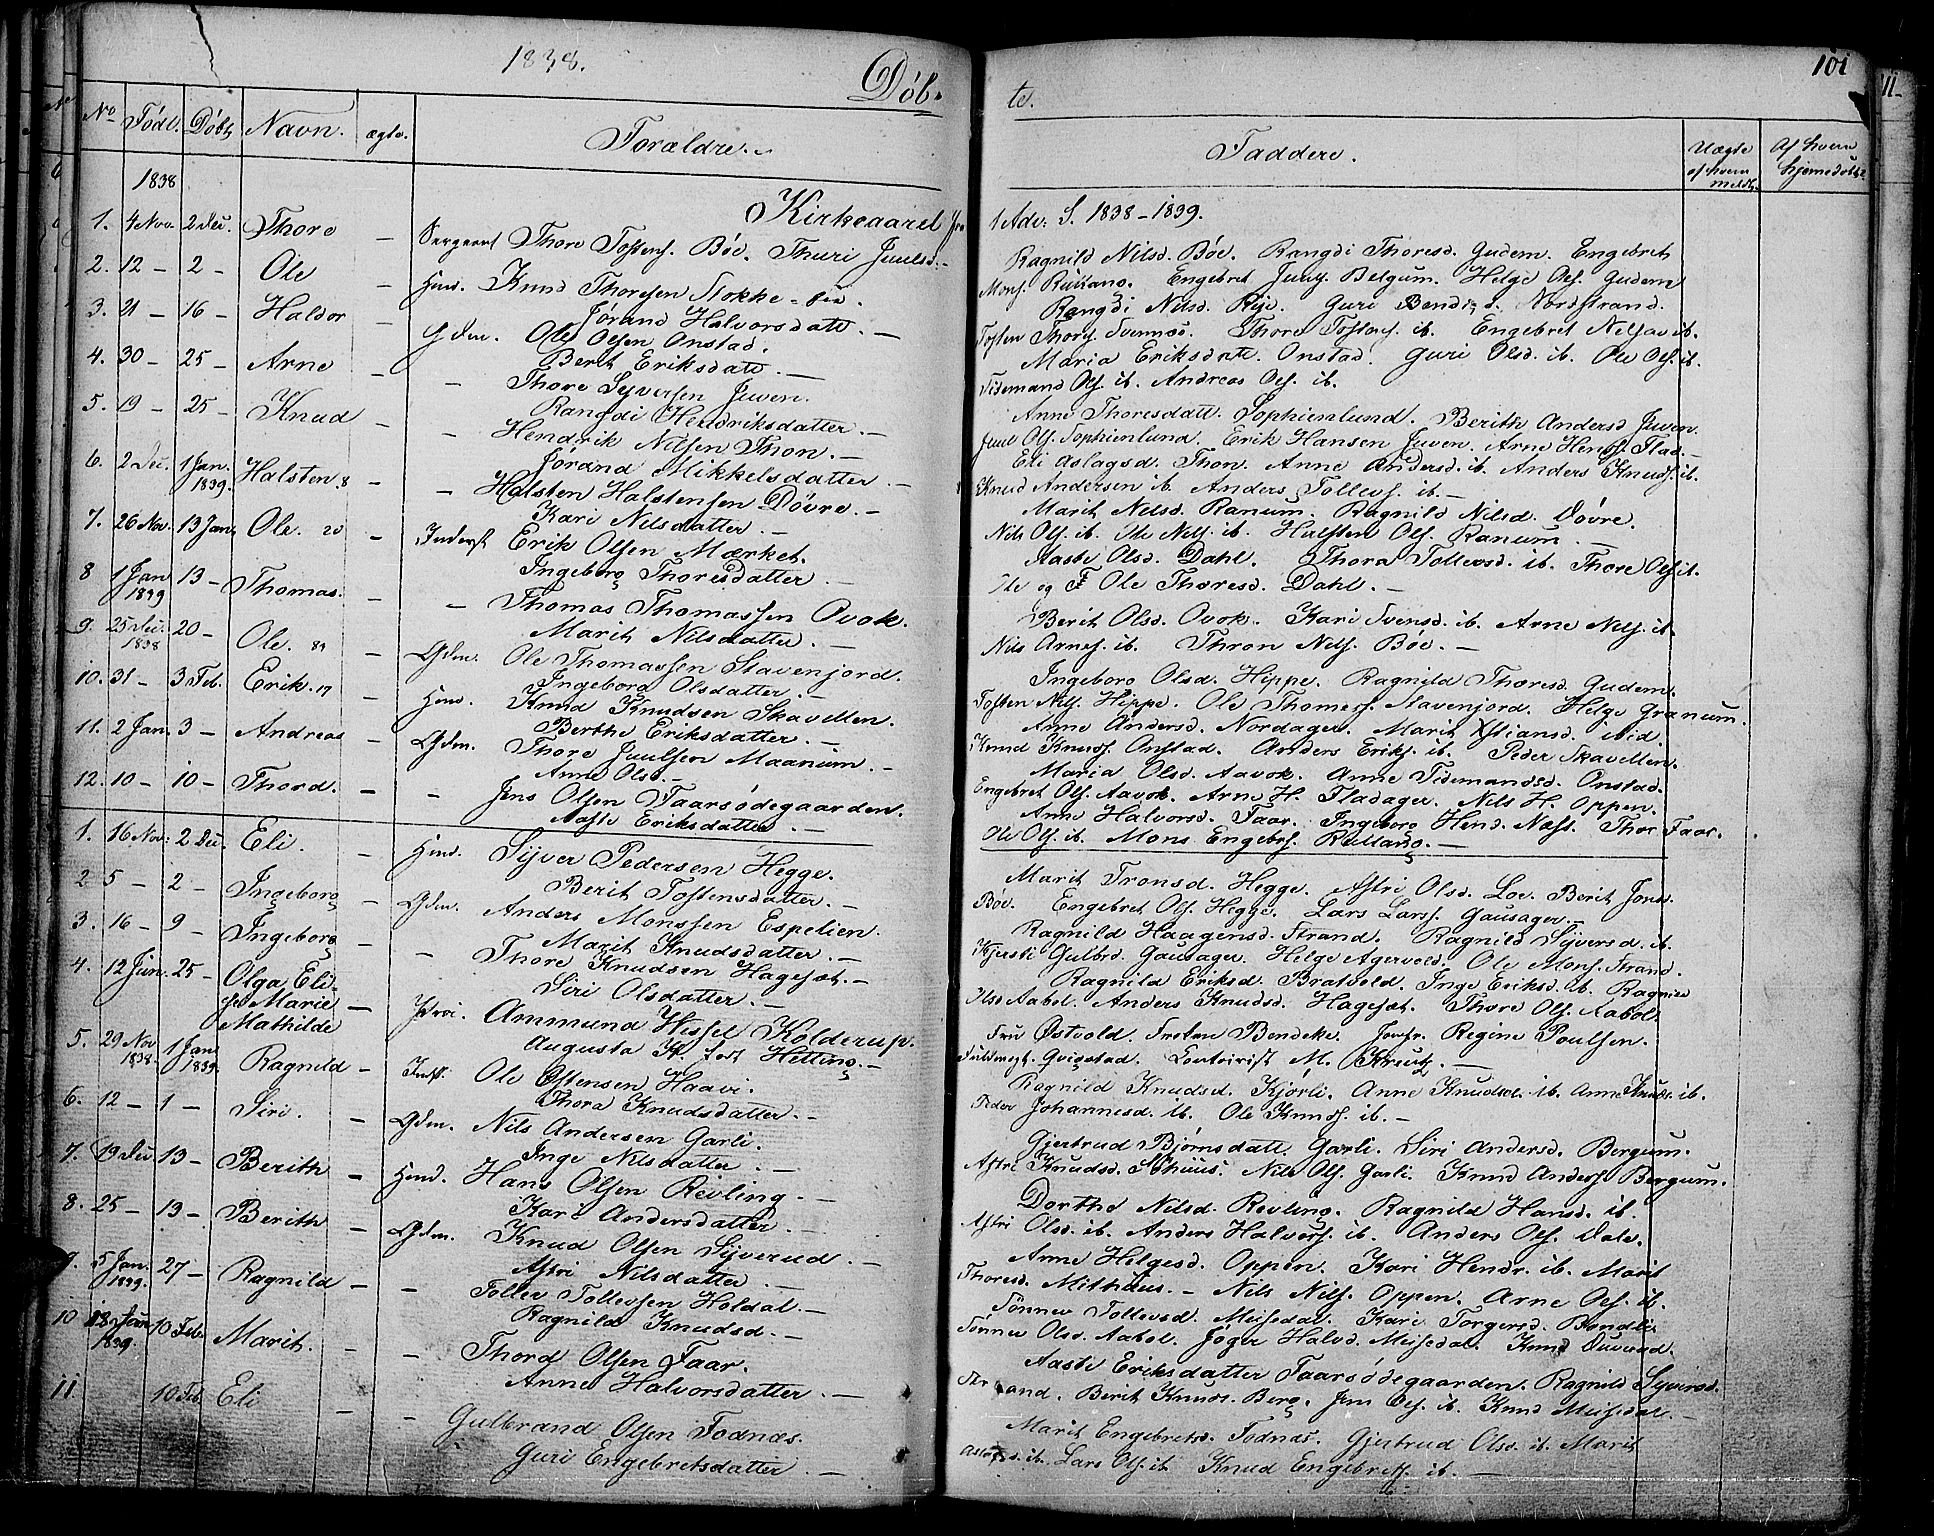 1838.
Døb-
No Födt. Döbt. Navn. ægte. Forældre.
1838
Kirkeaaret fra
1. 4 Nov. 2 Dec. Thore — Sergeant Thore Tostens. Böe. Thuri Juulsd. —
2. 12 — 2 — Ole — Huusd. Knud Thoresen Stokke-
Jörand Halvorsdatt. —
3. 21 — 16 — Haldor — Gdm. Ole Olsen Onstad.
Berit Eriksdatt. —
4. 30 — 25 — Arne — — Thore Syversen Juven.
Rangdi Hendriksdatter. —
5. 19 — 25 — Knud — — Hendrik Nilsen Thon. —
Jörand Mikkelsdatter. —
6. 2 Dec. 1 Jan. 1839. Halsten 8 — — Halsten Halstensen Dövre. —
Kari Nilsdatter. —
7. 26 Nov. 13 Jan. Ole. 20 — Inderst Erik Olsen Mærket.
Ingeborg Thoresdatter. —
8 1 Jan 1839 13 — Thomas. — — Thomas Thomassen Ovok.
Marit Nilsdatter. —
9. 25 Dec. 1838 20 — Ole. — Gdm. Ole Thomassen Stavenjord.
Ingeborg Olsdatter. —
10. 31 — 3 Feb. Erik. 17 — Huusd. Knud Knudsen Skavellen.
Berthe Eriksdatter. —
11. 2 Jan. 3 — Andreas — Gdm. Thore Juulsen Maanum. —
Anne Olsd. —
12. 10 — 10 — Thord. — — Jens Olsen Faarsödegaarden.
Aaste Eriksdatter. —
1. 16 Nov. 2 Dec. Eli. — Huusd. Syver Pedersen Hegge.
Berit Tostensdatter. —
2 5 — 2 — Ingeborg — Gdm. Anders Monssen Espelien.
Marit Knudsdatter. —
3. 16 — 9 — Ingeborg — — Thore Knudsen Hagesæt. —
Siri Olsdatter. —
4. 12 Jun. 25 — Olga Eli-
se Marie Mathilde — Proc. Ammund Hissel Kolderup.
Augusta K. född Hetting. —
5. 29 Nov 1838. 1 Jan 1839. Ragnild — Indst. Ole Östensen Haavi.
Thora Knudsdatter. —
6. 12 — 1 — Siri. — Gdm. Nils Andersen Garli.
Inge Nilsdatter. —
7. 19 Dec 13 — Berith — Huusd. Hans Olsen Revling. —
Kari Andersdatter. —
8. 25 — 13 — Berith — Gdm. Knud Olsen Syverud. —
Astri Nilsdatter. —
9. 5 Jan. 1839. 27 — Ragnild — — Tollev Tollevsen Holdal. —
Ragnild Knudsd. —
10 18 Jan 1839. 10 Feb. Marit. — — Thord Olsen Faar.
Anne Halvorsdatter. —
11 10 Feb. Eli — — Gulbrand Olsen Fodnæs.
Guri Engebretsdatter. —
101
te.
Faddere. Uægte af hvem meldt. Af hvem hjemedöbt.
1 Adv: S. 1838-1839.
Ragnild Nilsd. Böe. Rangdi Thoresd. Gudem. Engebret
Mons. Rulland. Engebret Juuls. Belgum. Helge Ols. Gudem
Rangdi Nilsd. Rye. Guri Bendixd. Nordstrand.
Tosten Thors. Svennæs. Thore Tostens. ib. Engebret Nelsen ib.
Maria Eriksdatt. Onstad. Guri Olsd. ib. Ole Ols. ib.
Tidemand Ols. ib. Andreas Ols. ib.
Anne Thoresdatt. Sophienlund. Berith Andersd Juven.
Juul Ols. Sophienlund. Erik Hansen Juven. Arne Hens. Flad. —
Eli Aslagsd. Thon. Anne Andersd. ib. Anders Knuds. ib.
Knud Andersen ib. Anders Tollevs. ib. —
Marit Nelsd. Ranum. Ragnild Nilsd. Dövre.
Nils Ols. ib. Ole Nels. ib. Halsten Ols. Ranum. —
Aaste Olsd. Dahl. Thora Tollevsd. ib. Thore Ols. ib.
Ole og F Ole Thoresd. Dahl. —
Berit Olsd. Ovok. Kari Svensd. ib. Arne Nels. ib.
Nils Arnes. ib. Thron Nels. Böe. —
Ingeborg Olsd. Hippe. Ragnild Thoresd. Gudem.
Tosten Nils. Hippe. Ole Thomess. Stavenjord. Helge Granum.
Anne Andersd. Nordager. Marit Xstiansd. Wid.
Knud Knuds. Onstad. Anders Eriks. ib. Peder Skavellen.
Maria Olsd. Aavok. Anne Tidemandsd. Onstad.
Engebret Ols. Aavok. Arne H. Fladager. Nils H. Oppen.
Anne Halvorsd. Faar. Ingeborg Hend. Næss. Thor Faar.
Ole Ols. ib. Mons Engebrs. Rulland. —
Marit Tronsd. Hegge. Astri Olsd. Loe. Berit Jonsd.
Böe. Engebret Ols. Hegge. Lars Lars. Gausager. —
Ragnild Haagensd. Strand. Ragnild Syversd. ib.
Kjersti Gulbrd. Gausager. Helge Agervold. Ole Mons. Strand.
Ragnild Eriksd. Bratvold. Inge Eriksd. ib. Ragnild
Olsd Aabel. Anders Knudsd. Hagesæt. Thore Ols. Aabol.
Fru Östvold. Frøken Bendeke. Jomfr. Regine Poulsen.
Fuldmegt. Qvigstad. Contoirist M. Kreutz. —
Ragnild Knudsd. Kjorli. Anne Knudsd. ib. Anne Knuds. ib.
Peder Johannesd. ib. Ole Knuds. ib. —
Gjertrud Björnsdatt. Garli. Siri Andersd. Bergum.
Astri Knudsd. Nils Ols. Garli. Knud Anders. Bergum.
Dorthe Nilsd. Revling. Ragnild Hansd. ib.
Astri Olsd. ib. Anders Halvors. ib. Anders Ols. Dale.
Anne Helgesd. Oppen. Kari Hendr. ib. Marit
Thoresd. Mithuus. — Nils Nils. Oppen. Arne Ols. ib.
Tönnev Tollevsd. Meisedal. Kari Torgersd. Bondli.
Tönnev Olsd. Aabol. Jöger Halvd. Meisedal. Knud Duverud.
Aaste Eriksdatter Faarsödegaarden. Ragnild Syversd.
Strand. Berit Knuds. Berg. Jens Ols. ib. Knud Meisedal. —
Marit Engebretsd. Fodnæs. Gjertrud Olsd. ib. Marit
ib. Lars Ols. ib. Knud Engebrets. ib. —